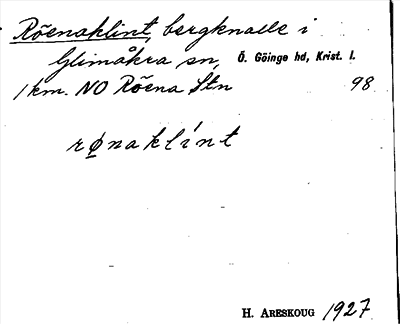 Röenaklint, bergknalle i
Glimåkra sn, Ö. Göinge hd, Krist. l.
1 km. NO Röena Stn 98
rø̱naklínt
H. ARESKOUG 1927